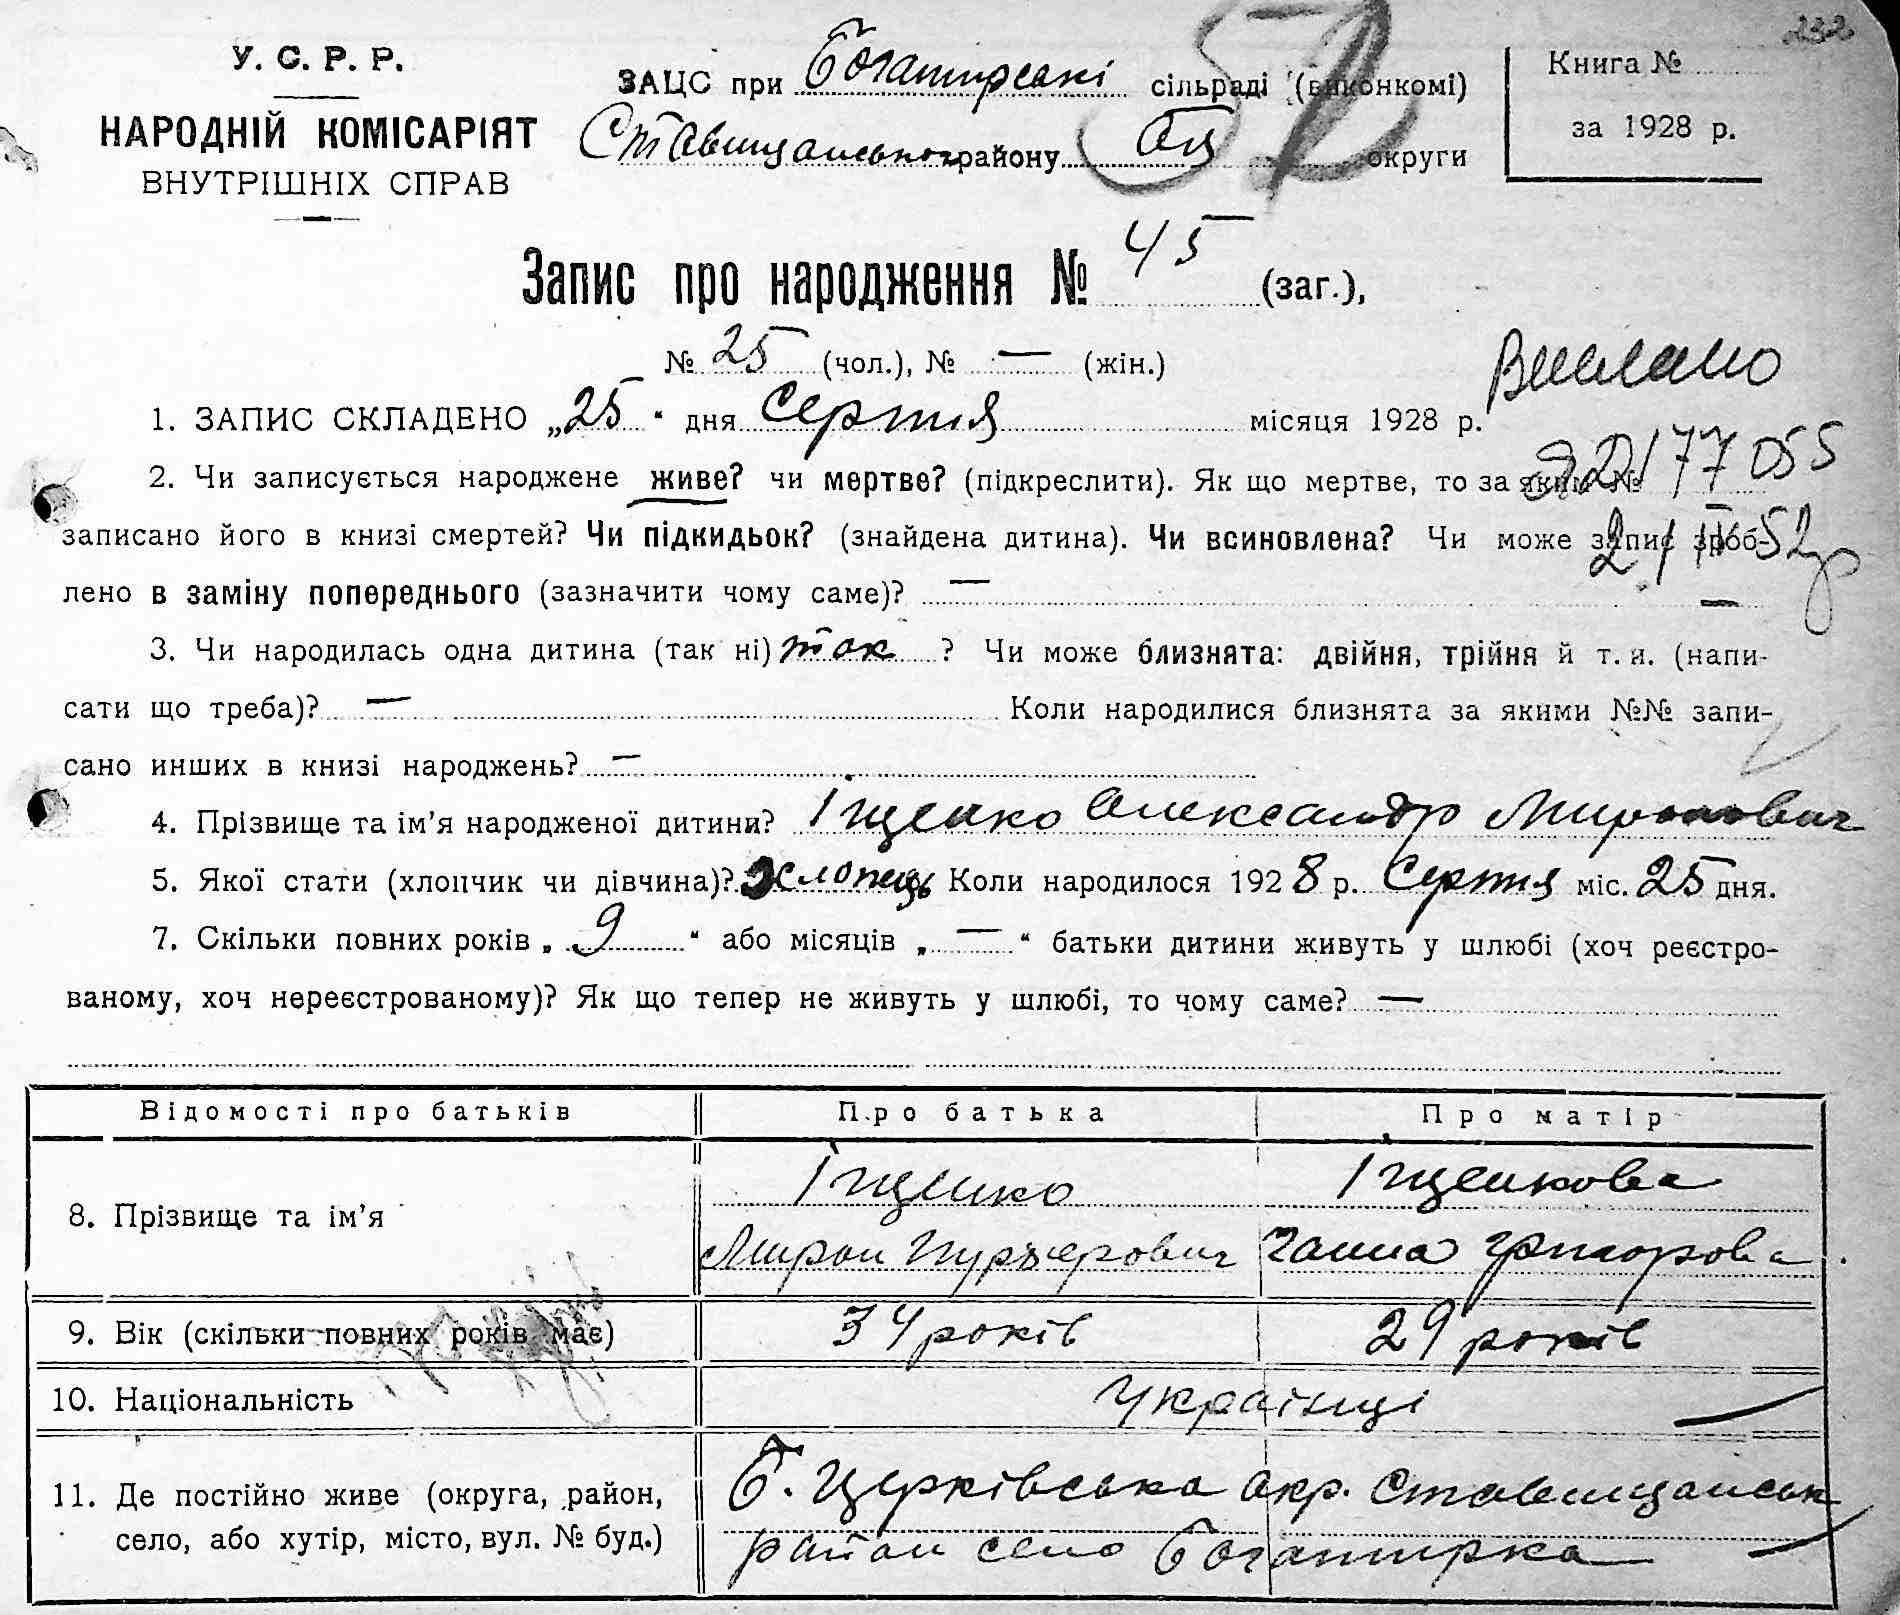 232
У. С. Р. Р.
НАРОДНІЙ КОМІСАРІЯТ
ВНУТРІШНІХ СПРАВ
ЗАЦС при Богатирські сільраді (виконкомі)
Ставищанського району БЦ округи
Книга №
за 1928 р.
Запис про народження № 45 (заг.),
№ 25 (чол.), № — (жін.)
Вислано
1. ЗАПИС СКЛАДЕНО „25“ дня Серпня місяця 1928 р.
2. Чи записується народжене живе? чи мертве? (підкреслити). Як що мертве, то за яким №
177055
записано його в книзі смертей? Чи підкидьок? (знайдена дитина). Чи всиновлена? Чи може запис зроб-
2/IV 52р
лено в заміну попереднього (зазначити чому саме)? — —
3. Чи народилась одна дитина (так ні) так ? Чи може близнята: двійня, трійня й т. и. (напи-
сати що треба)? — Коли народилися близнята за якими №№ запи-
сано инших в книзі народжень? —
4. Прізвище та ім’я народженої дитини? Іщенко Олександр Миронович
5. Якої стати (хлопчик чи дівчина)? Хлопець Коли народилося 1928 р. Серпня міс. 25 дня.
7. Скільки повних років „ 9 “ або місяців „ — “ батьки дитини живуть у шлюбі (хоч реєстро-
ваному, хоч нереєстрованому)? Як що тепер не живуть у шлюбі, то чому саме? —
Відомості про батьків Про батька Про матір
8. Прізвище та ім’я
Іщенко Іщенкова
Мирон Ганна Григорова
9. Вік (скільки повних років має) 34 років 29 років
10. Національність Українці
11. Де постійно живе (округа, район,
село, або хутір, місто, вул. № буд.)
Б. Церківська окр. Ставищанськ
район село Богатирка